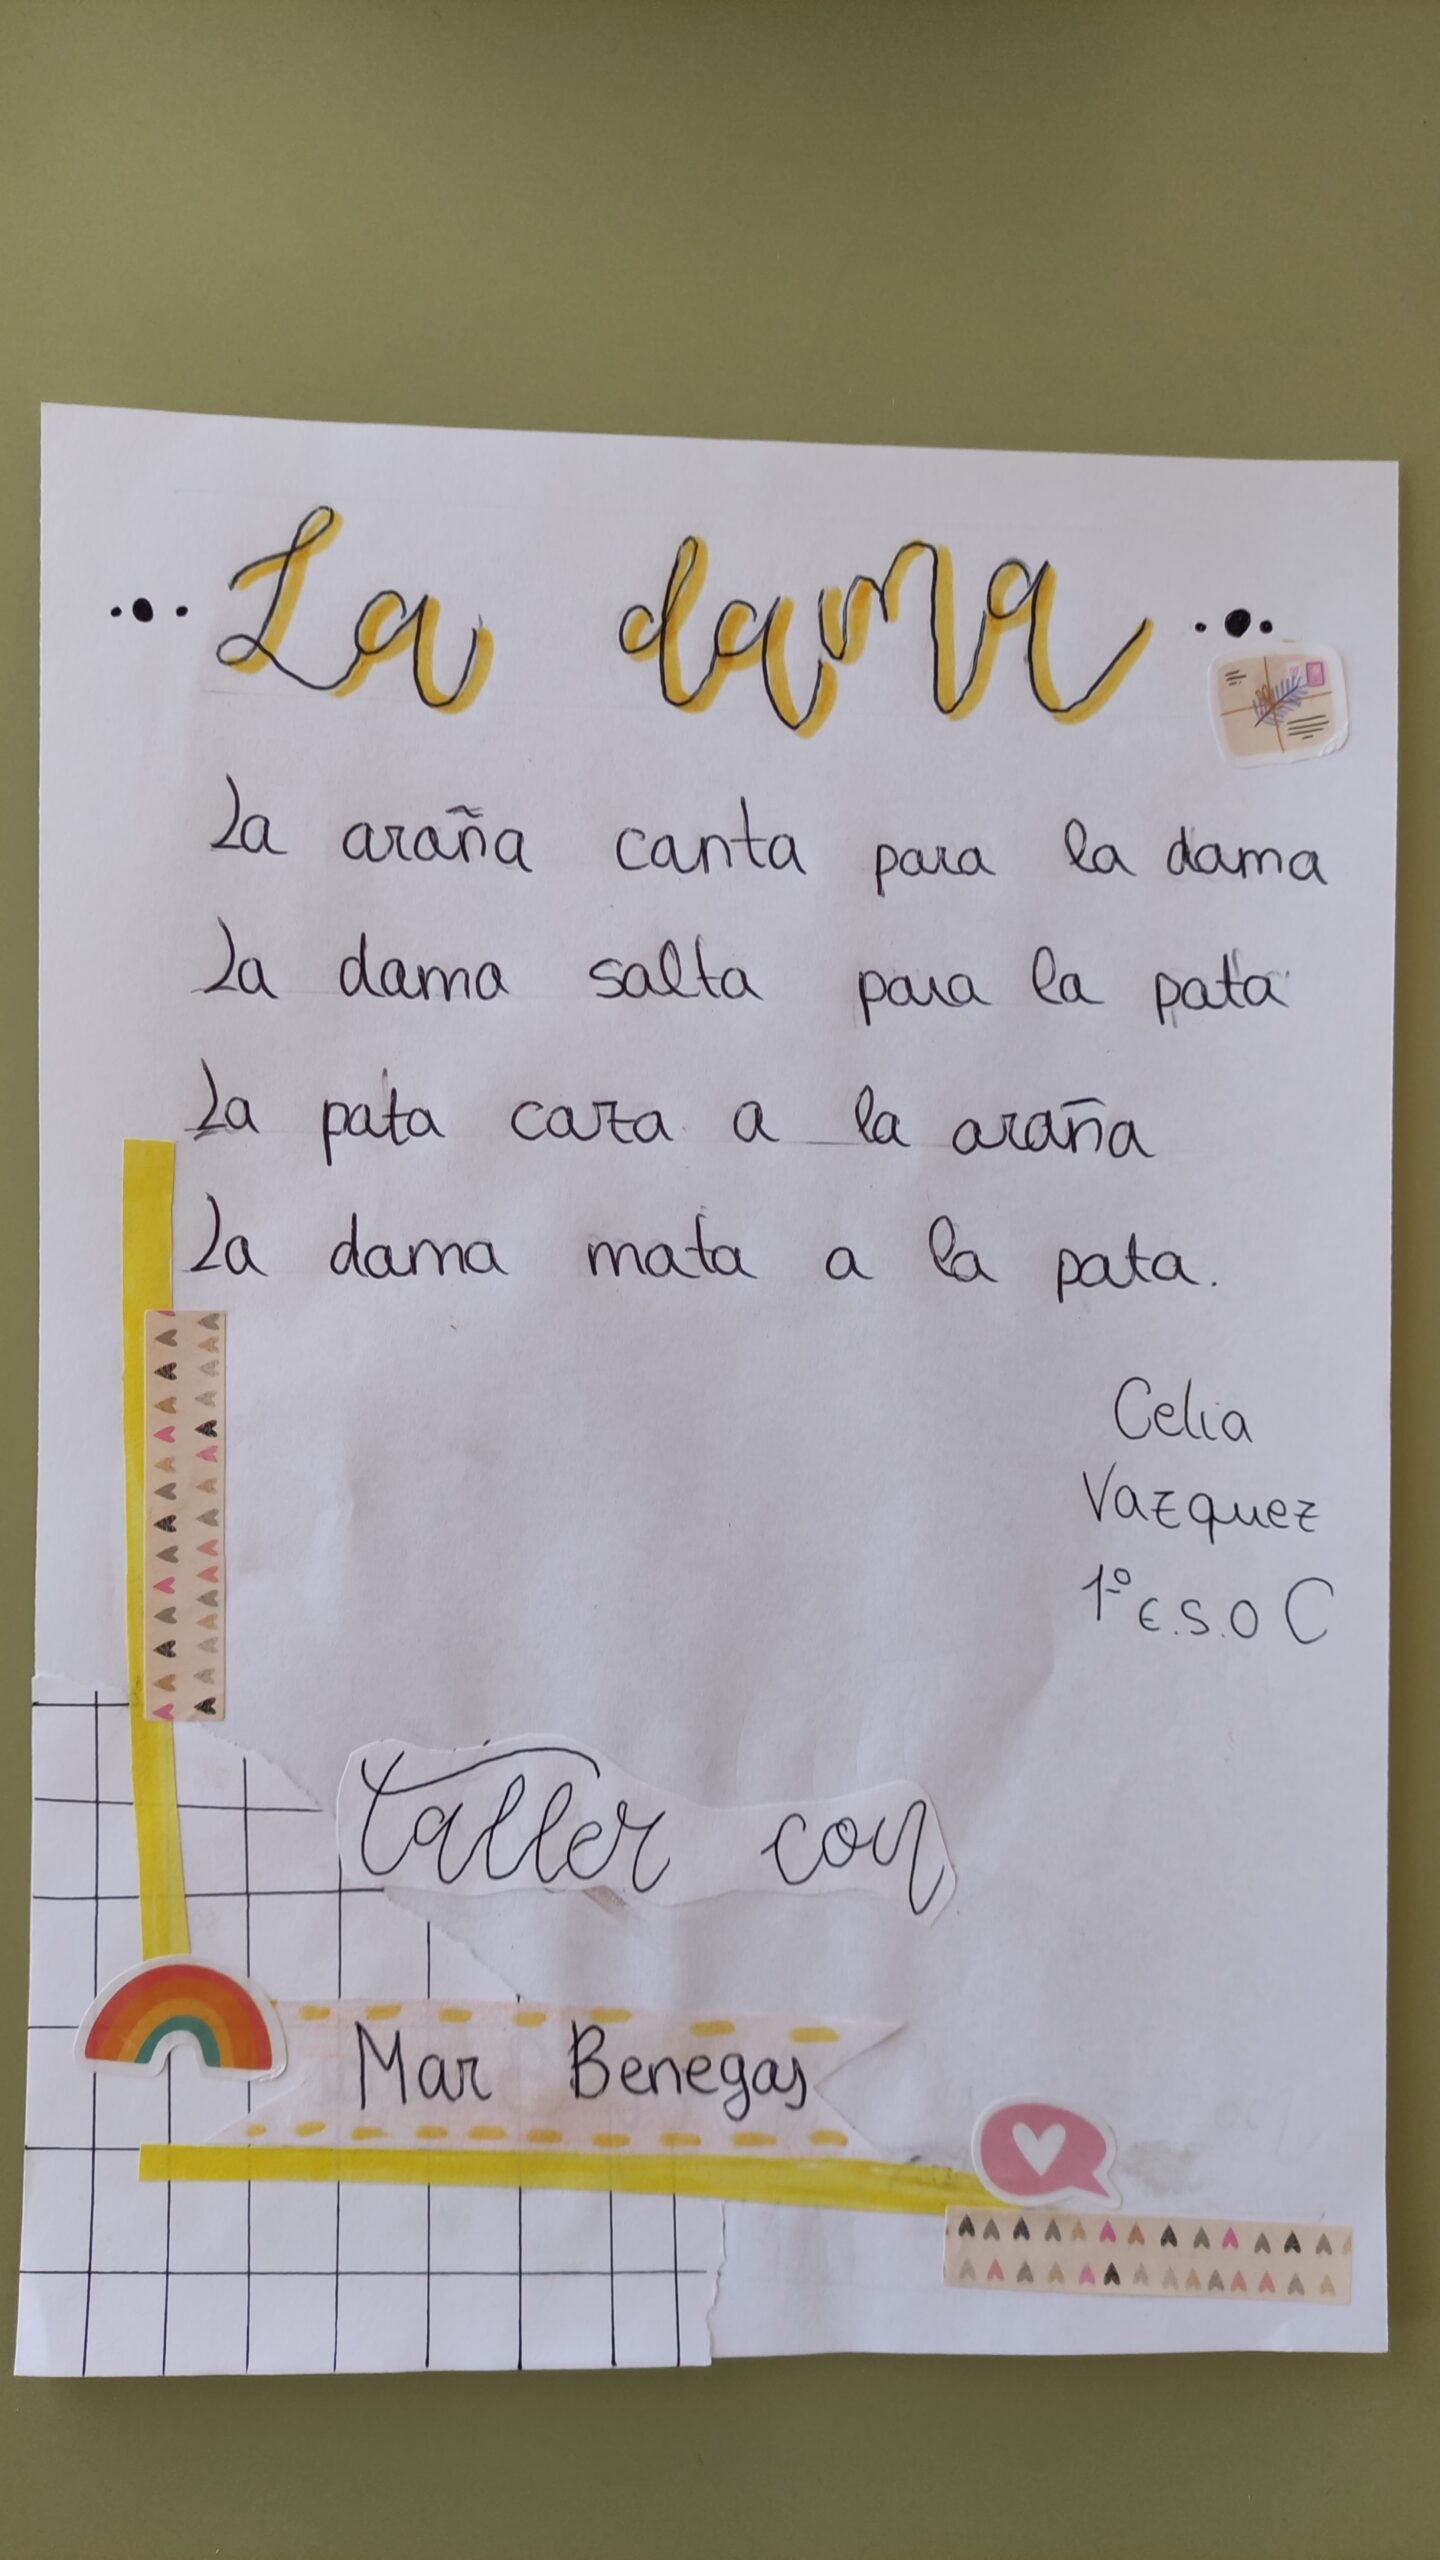 La dama
La araña canta para la dama
La dama salta para la pata
La pata caza a la araña
La dama mata a la pata.
Celia
Vazquez
1º E.S.O C
Taller con
Mar Benegas